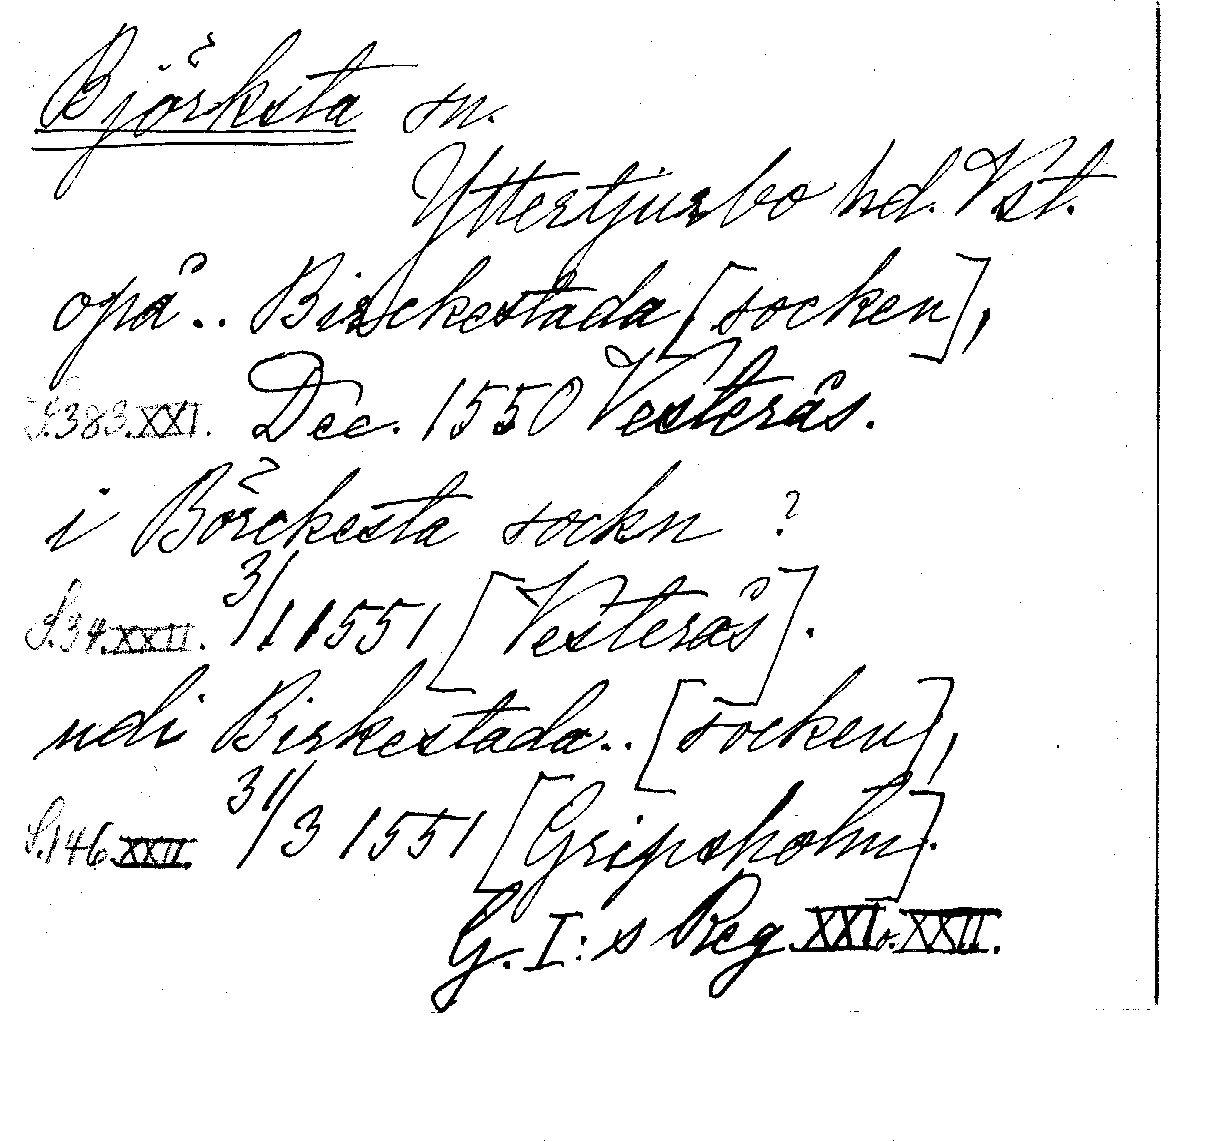 Björksta sn.
Yttertjurbo hd. Vst.
opå.. Birckestada [socken],
S.383.XXI. Dec. 1550 Vesterås.
i Börckesta sockn ?
S.34.XXII. 3/1 1551 [Vesterås].
udi Birkestada.. [socken],
S.146.XXII. 31/3 1551 [Gripsholm].
G. I:s Reg. XXI o. XXII.